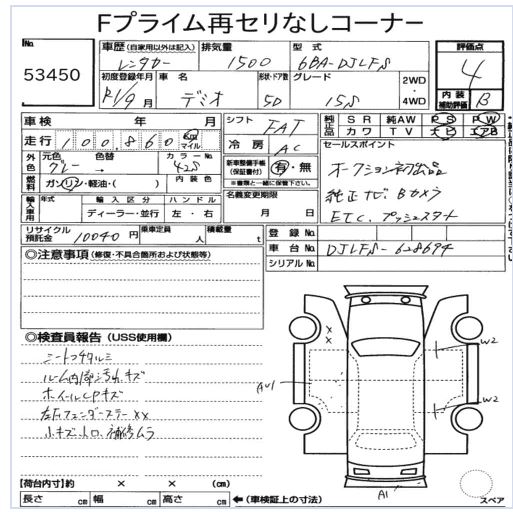 Fプライム再セリなしコーナー
No.
53450
車歴 (自家用以外は記入)
レンタカー
排気量
1500
型式
6BA-DJLFS
評価点
4
初度登録年月
R1/9月
車名
デミオ
形状・ドア数
5D
グレード
15S
2WD
・
4WD
内装
補助評価
B
車検 年 月
走行 100,860 km マイル
シフト
FAT
冷房
AC
純正品 SR 純AW PS PW
カワ TV ナビ エアB
外色 元色 グレー → 色替
カラーNo. 42S
燃料 ガソリン・軽油・( )
内装色
新車整備手帳
(保証書付)
有・無
※書類と一緒に保管下さい。
セールスポイント
オークション初出品
純正ナビ、Bカメラ
ETC、プッシュスタート
輸入車用 年式
輸入区分
ディーラー・並行
ハンドル
左・右
名義変更期限
月 日
リサイクル
預託金
10040円
乗車定員
人
積載量
t
登録No.
車台No. DJLFS-628694
シリアルNo.
◎注意事項 (修復・不具合箇所および状態等)
◎検査員報告 (USS使用欄)
シートフチタルミ
ルーム内部
ホイールCPキズ
左Fフェンダーステー××
小キズ、小凹、補修ムラ
××
W2
AU1
W2
A1
スペア
【荷台内寸】約 × × (cm)
長さ cm 幅 cm 高さ cm ←(車検証上の寸法)